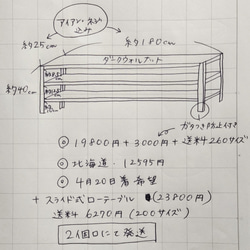 アイアン・ネット
込み
約25cm
約180cm
ダークウォルナット
約40cm
ガタつき防止付き
◎ 19800円+3000円+送料260サイズ
◎ 北海道:12595円
◎ 4月20日着希望
+ スライド式ローテーブル (23800円)
送料 6270円 (200サイズ)
2個口にて発送